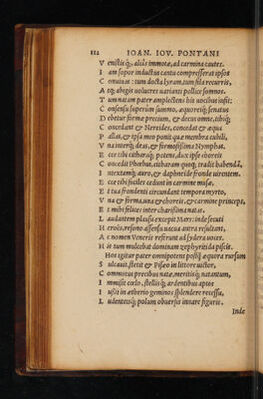 112 IOAN. IOV. PONTANI
V enistiq; aliis immote, ad carmina cautes.
I am sopor inductus cantu compresserat ipsos
C onuiuas: tum docta lyram, tum fila recurris,
A tq; abegit volucres uarianti pollice somnos.
T um natam pater amplectens his uocibus infit:
C onsensu superûm summo, auoretiq; senatus
D ebetur formæ precium, & decus omne, tibiq;
C oncedant & Nereides, concedat & æqua
P allas, & ipsa meo ponit quæ membra cubili,
V na interq; deas, & formosissima Nymphas.
E cce tibi potens, duc ipse choreis
C oncedat Phœbus, quoq; tradit habendā,
I ntextamq; auro, & daphneide fronde uirentem.
E cce tibi faciles cedunt in carmine musæ,
E t tua frondenti circundant tempora myrto,
V na & forma, una & choreis, & carmine princeps,
E t mihi felices inter charissima natas.
L audantem plausu excepit Mars: inde secuti
H eroës, resono assensu uacua antra resultant,
A c nomen Veneris referunt ad sydera uoces.
H æc tum mulcebat dominam zephyritis da psicie.
Hos igitur pater omnipotens postq; æquora rursum
S ulcauit, stetit & Piseo in littore uictor,
C ommotus precibus natæ, meritisq; natantum,
I mmisit cœlo, stellisq; ardentibus aptos
I ussit in ætherio geminos splendere recessu,
L udentesq; polum obuersa innare figuris.
Inde